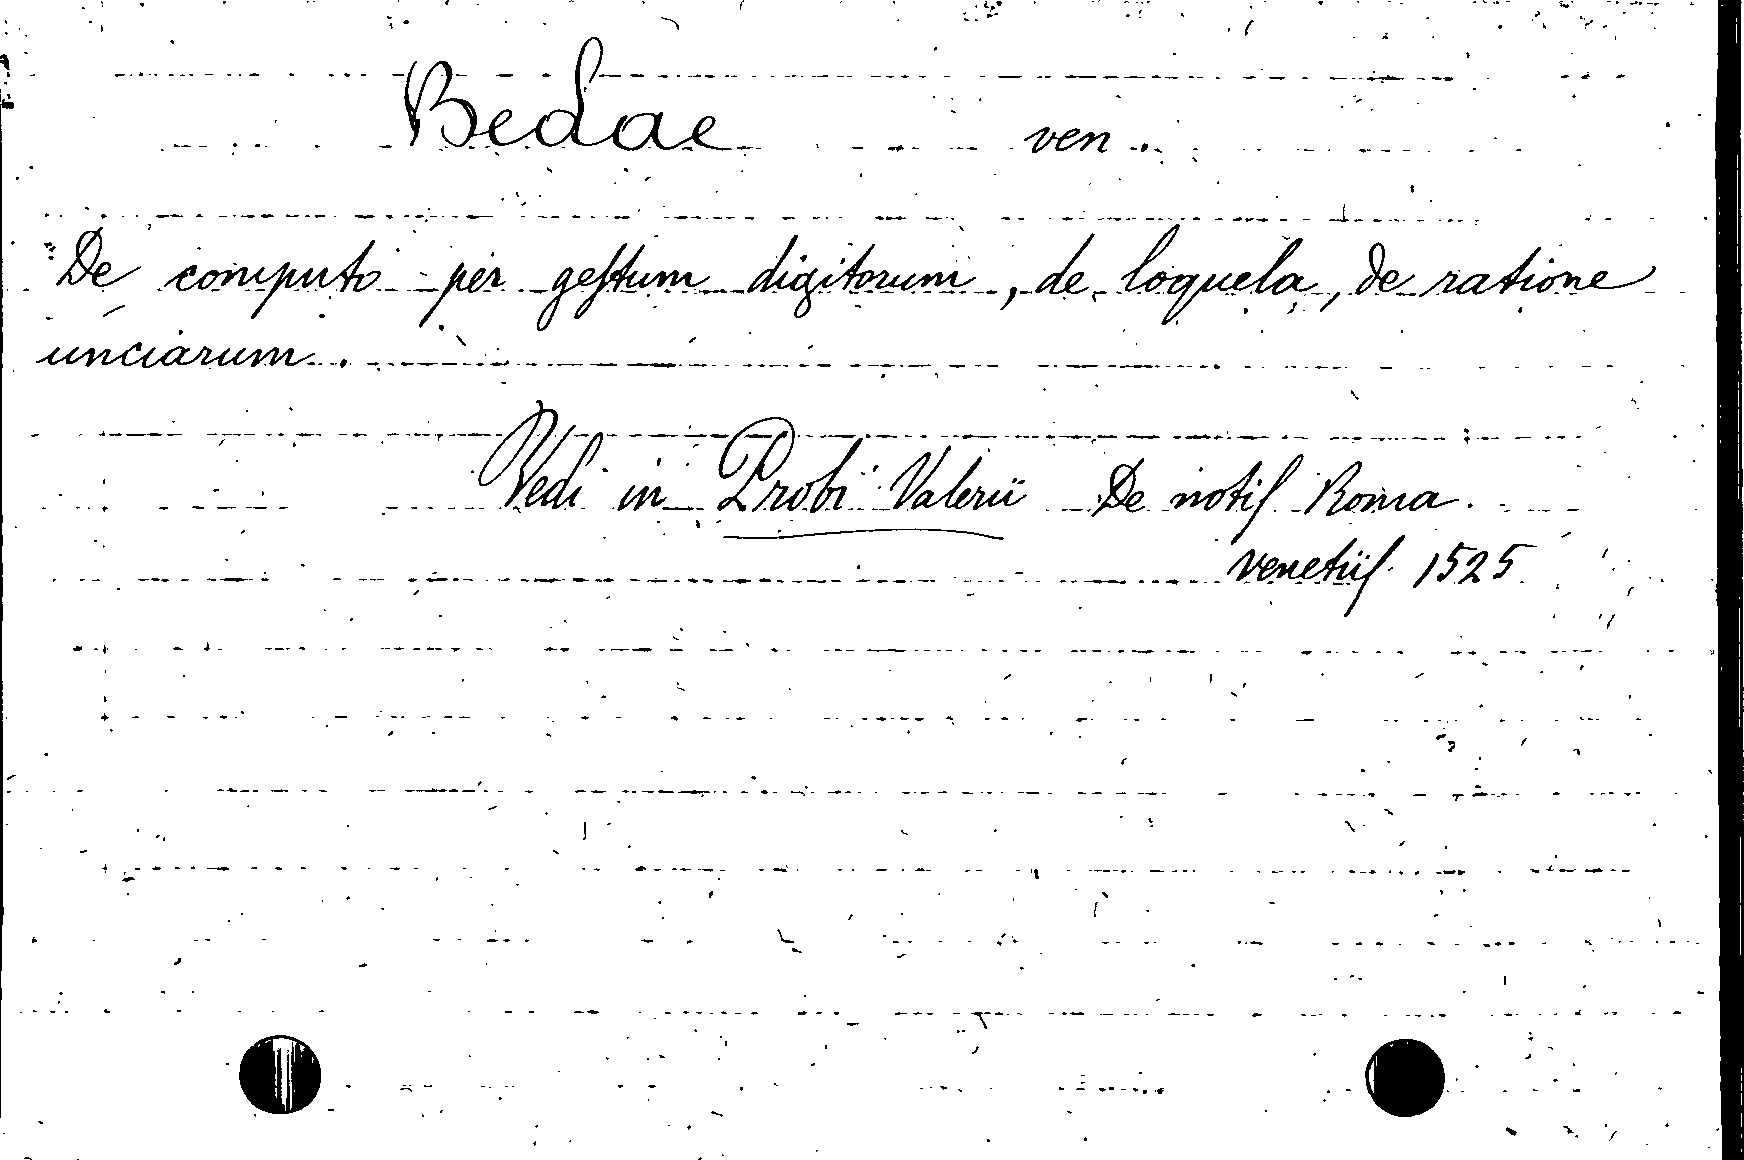 Bedae ven.
De computo per geſtum digitorum, de loquela, de ratione
unciarum.
Vedi in Probi Valerii De notiſ Roma.
Venetiiſ 1525